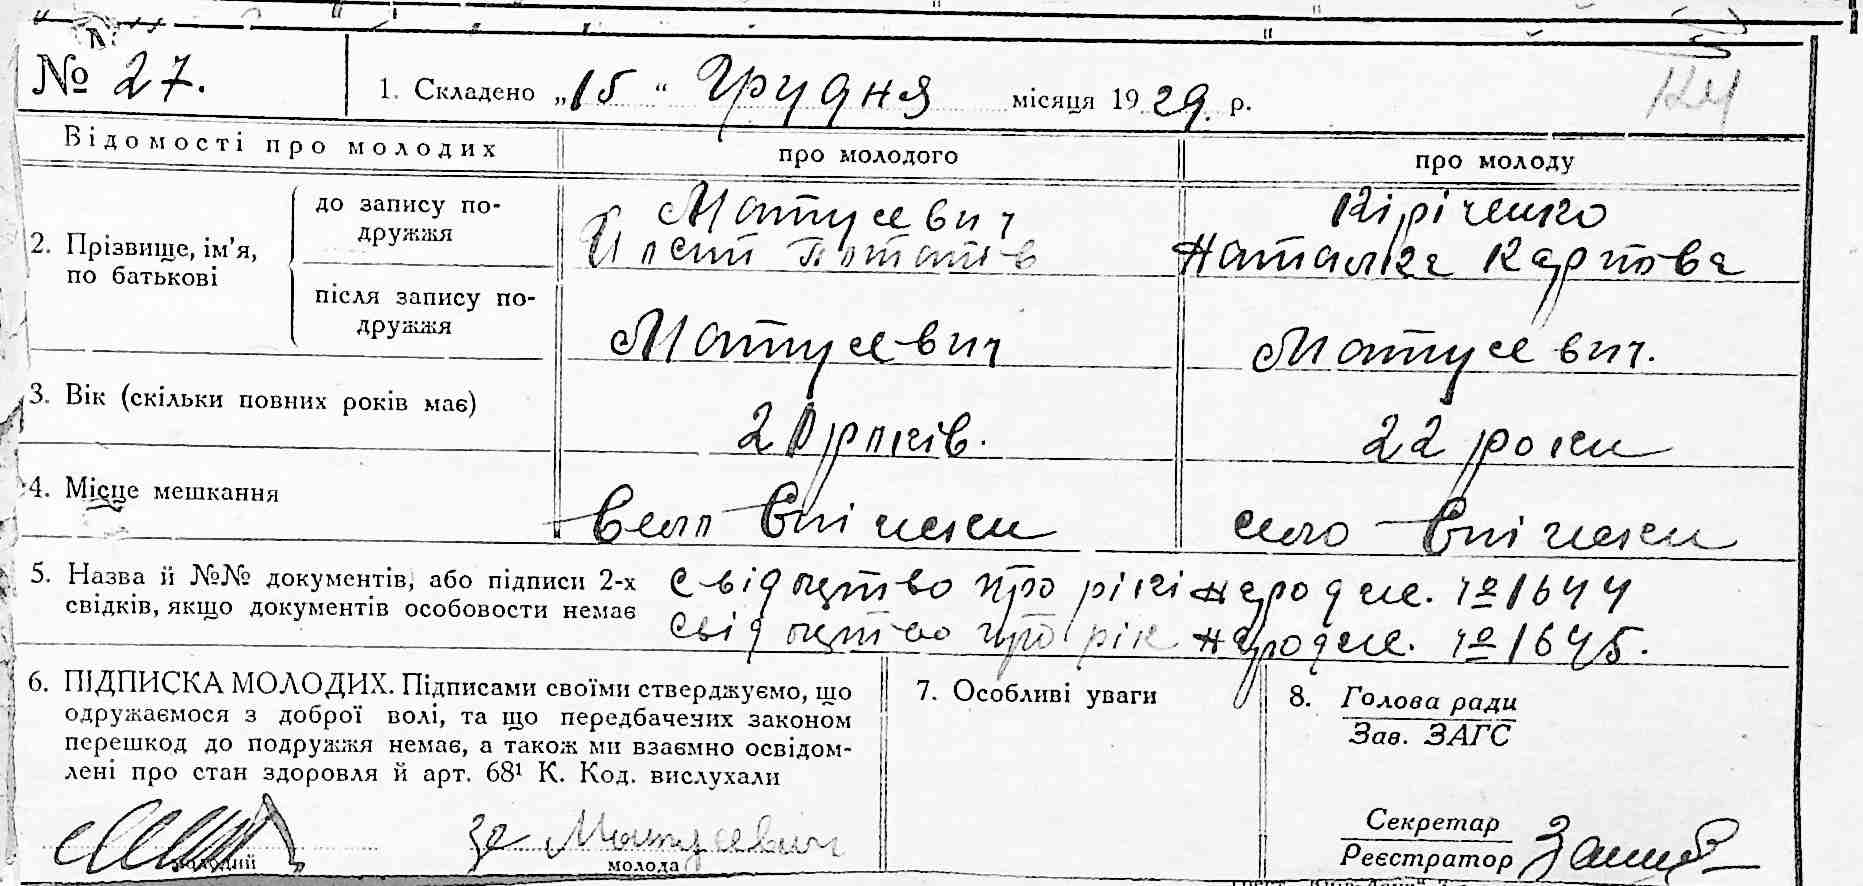 № 27.
1. Складено „15“ Грудня місяця 1929. р.
Відомості про молодих
про молодого
про молоду
2. Прізвище, ім'я, по батькові
до запису по-
дружжя
Матусевич
Йосип Потапів
Кіріченко
Наталка Карпова
після запису по-
дружжя
Матусевич
Матусевич.
3. Вік (скільки повних років має)
20 років.
22 роки
4. Місце мешкання
село
село
5. Назва й №№ документів, або підписи 2-х
свідків, якщо документів особовости немає
свідоцтво про рікі народже. № 1644
свідоцтво про рік народже. № 1645.
6. ПІДПИСКА МОЛОДИХ. Підписами своїми стверджуємо, що
одружаємося з доброї волі, та що передбачених законом
перешкод до подружжя немає, а також ми взаємно освідом-
лені про стан здоров'я й арт. 68¹ К. Код. вислухали
за Матусевич
молодий
молода
7. Особливі уваги
8. Голова ради
Зав. ЗАГС
Секретар
Реєстратор